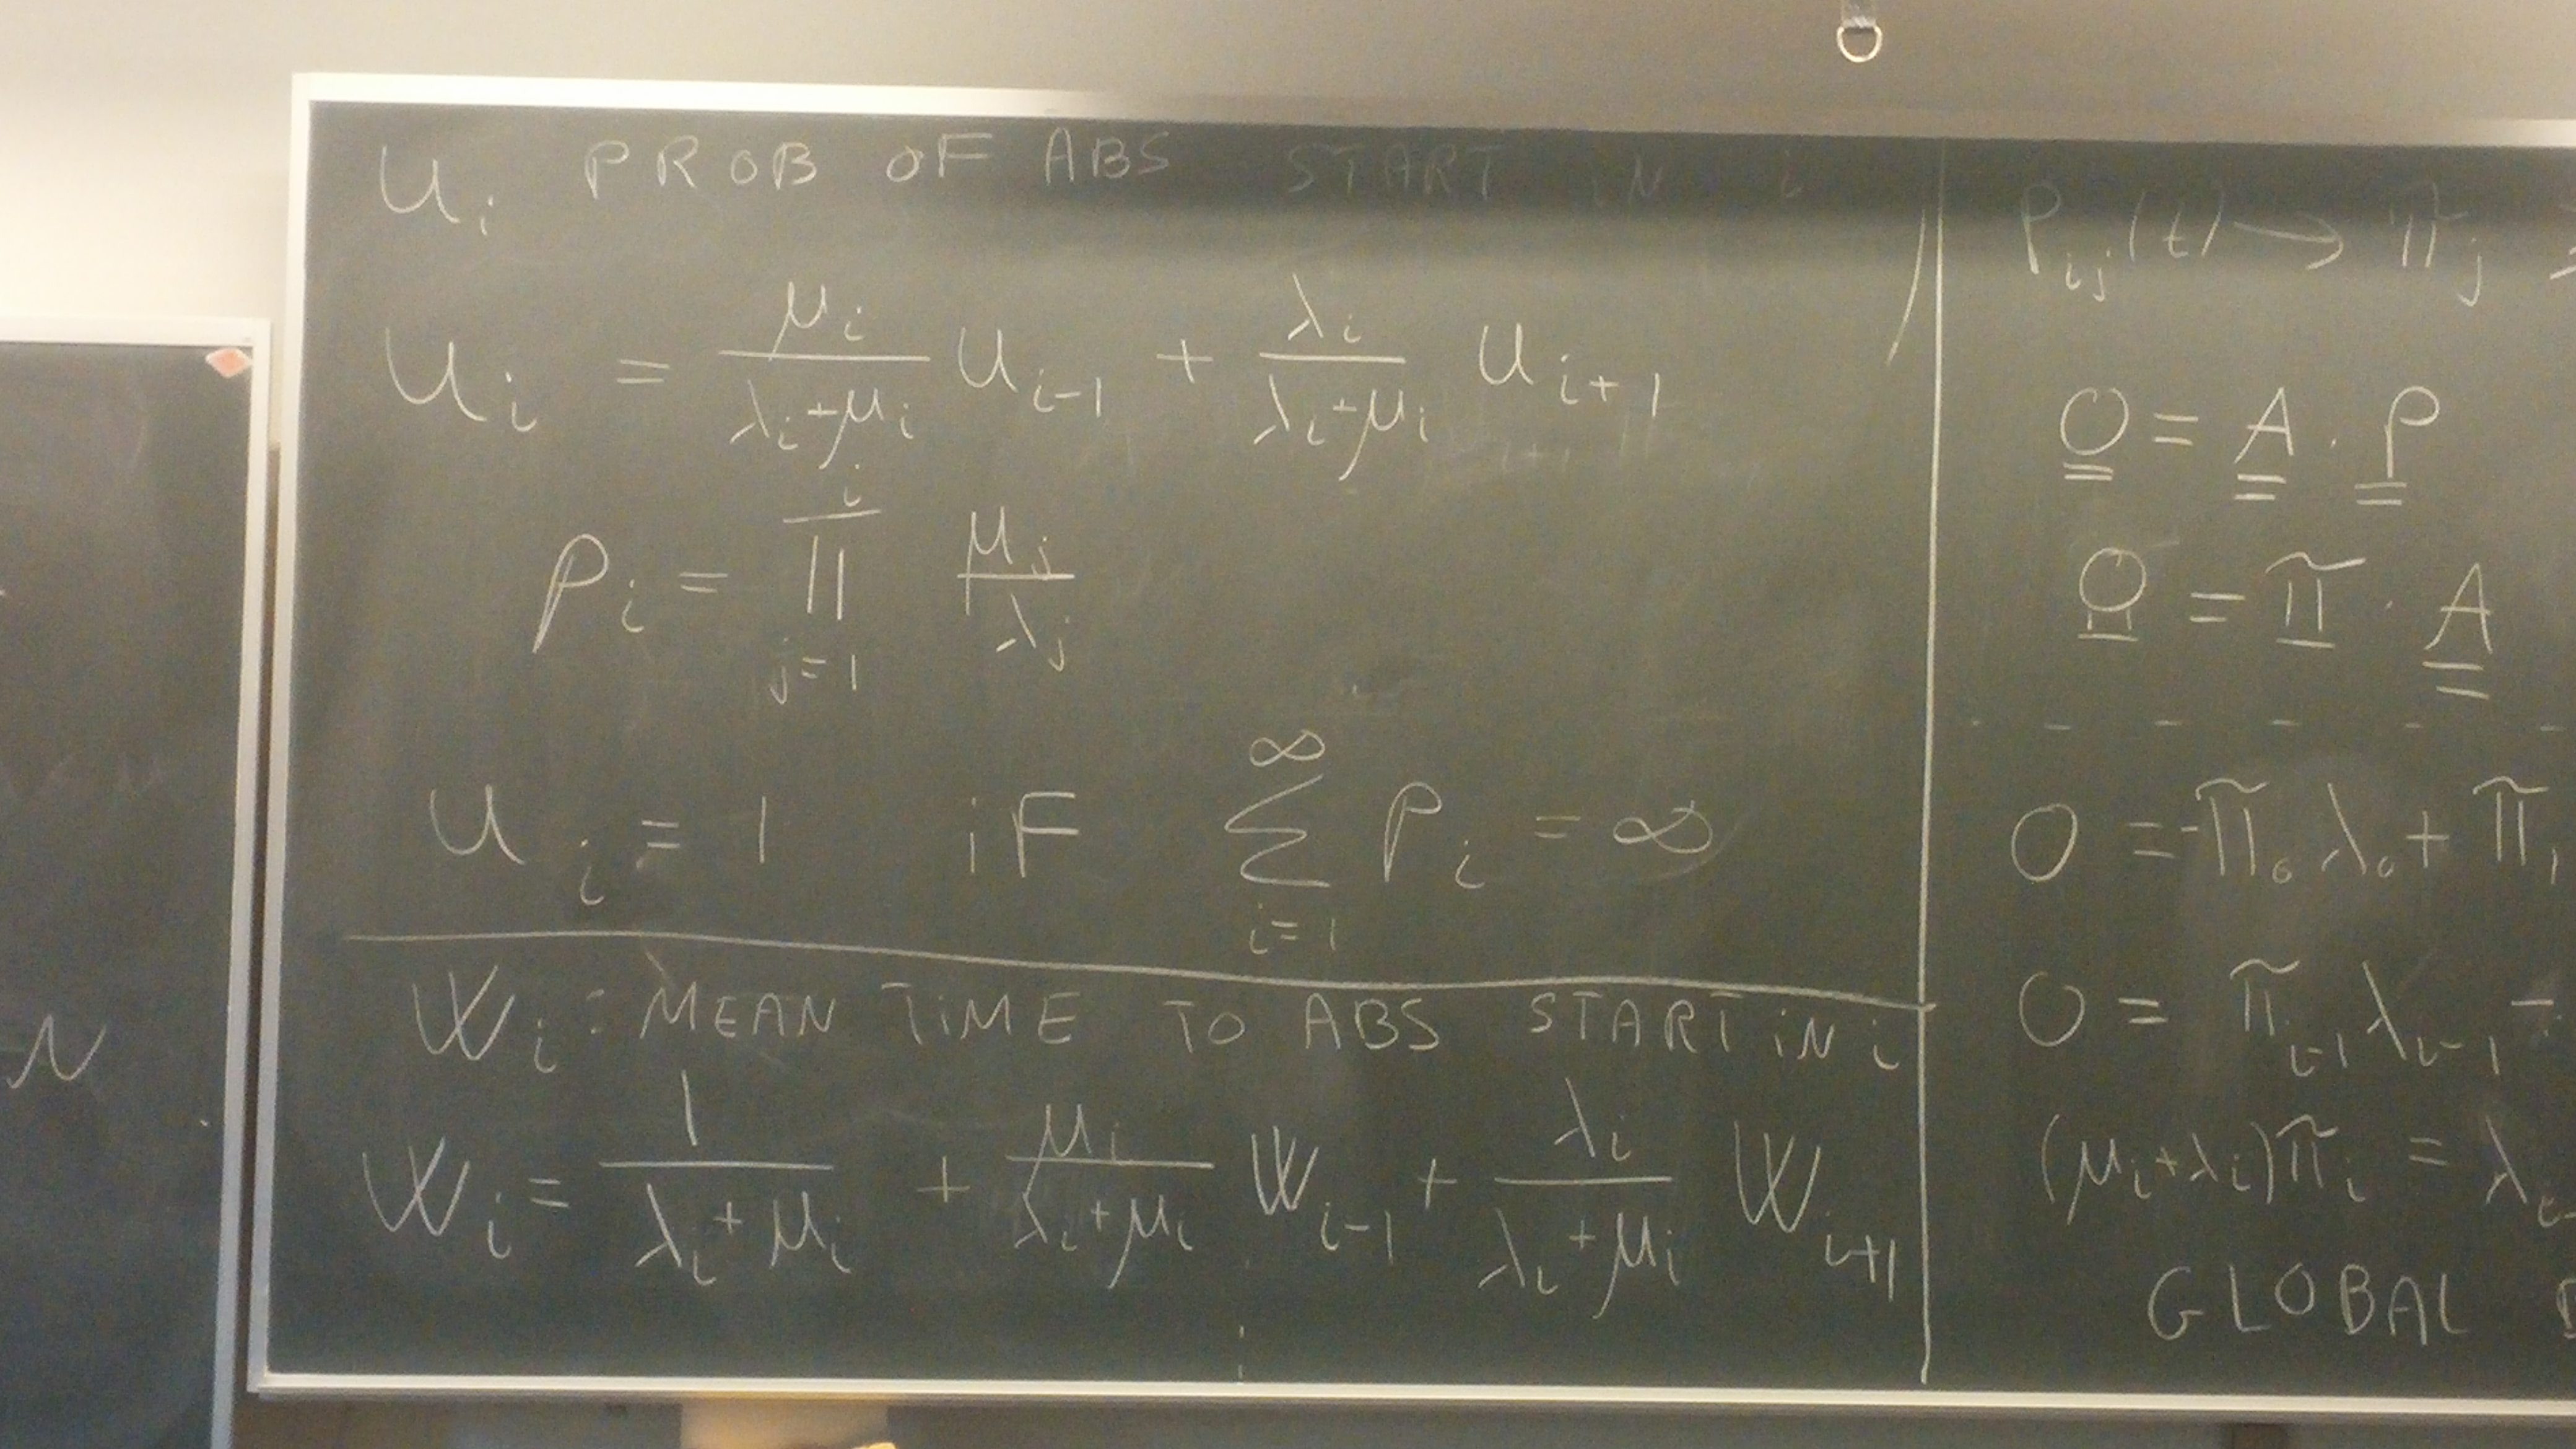 u_i PROB OF ABS START IN i
u_i = μ_i/(λ_i+μ_i) u_{i-1} + λ_i/(λ_i+μ_i) u_{i+1}
ρ_i = ∏_{j=1}^{i} μ_j/λ_j
u_i = 1 iF ∑_{i=1}^{∞} ρ_i = ∞
W_i : MEAN TiME TO ABS START iN i
W_i = 1/(λ_i+μ_i) + μ_i/(λ_i+μ_i) W_{i-1} + λ_i/(λ_i+μ_i) W_{i+1}
P_{ij}(t) → π_j
0 = A · P
0 = π · A
0 = -π_0 λ_0 + π_1
0 = π_{i-1} λ_{i-1} -
(μ_i+λ_i)π_i = λ_{i-
GLOBAL